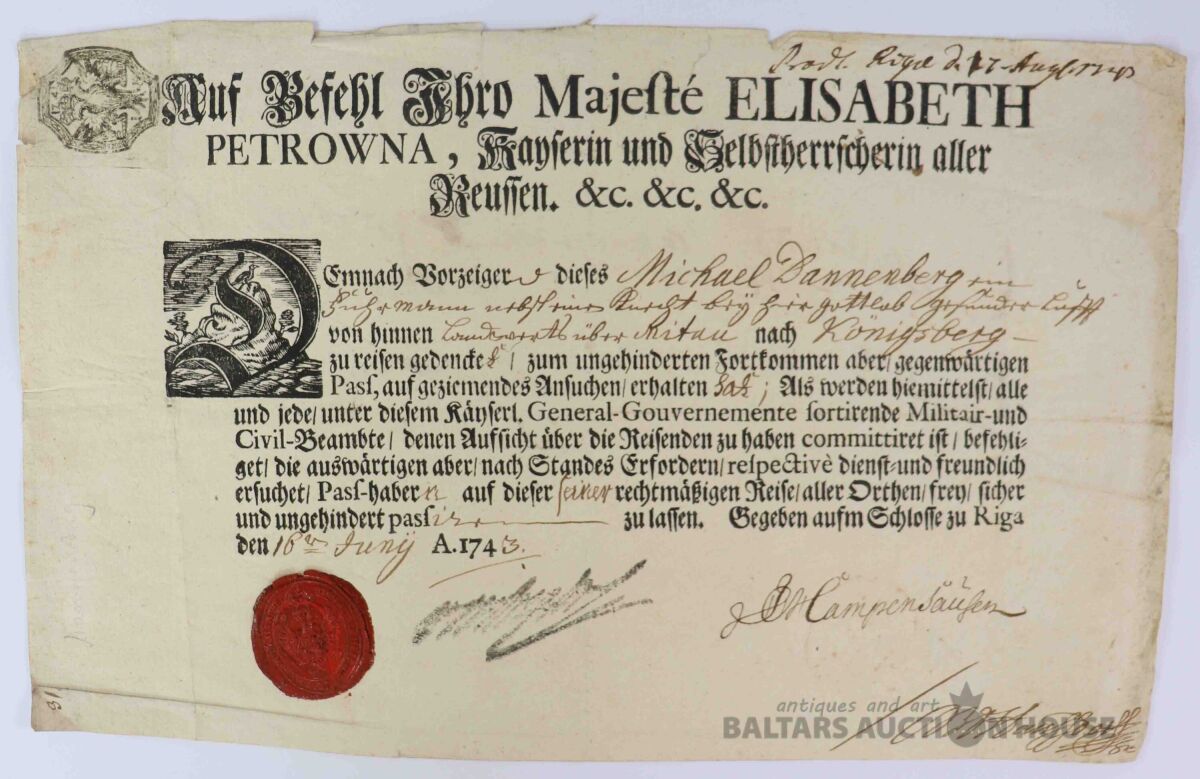 Prod. Riga d. 17. Aug.
Auf Befehl Ihro Majesté ELISABETH
PETROWNA, Kayserin und Selbstherrscherin aller
Reussen. &c. &c. &c.
DEmnach Vorzeiger dieses Michael Dannenberg ein
Fuhrmann nebst einen Knecht bey hier gottlob gesunder Lufft
von hinnen Landwerts über Mitau nach Königsberg
zu reisen gedencket / zum ungehinderten Fortkommen aber / gegenwärtigen
Pass, auf geziemendes Ansuchen / erhalten hat; Als werden hiemittelst / alle
und jede / unter diesem Käyserl. General-Gouvernemente sortirende Militair-und
Civil-Beambte / denen Aufsicht über die Reisenden zu haben committiret ist / befehli-
get / die auswärtigen aber / nach Standes Erfordern / respectivè dienst-und freundlich
ersuchet / Pass-haber auf dieser seiner rechtmäßigen Reise / aller Orthen / frey / sicher
und ungehindert passiren zu lassen. Gegeben aufm Schlosse zu Riga
den 16ten Junÿ A. 1743.
Campenhausen
antiques and art
BALTARS AUCTION HOUSE
31